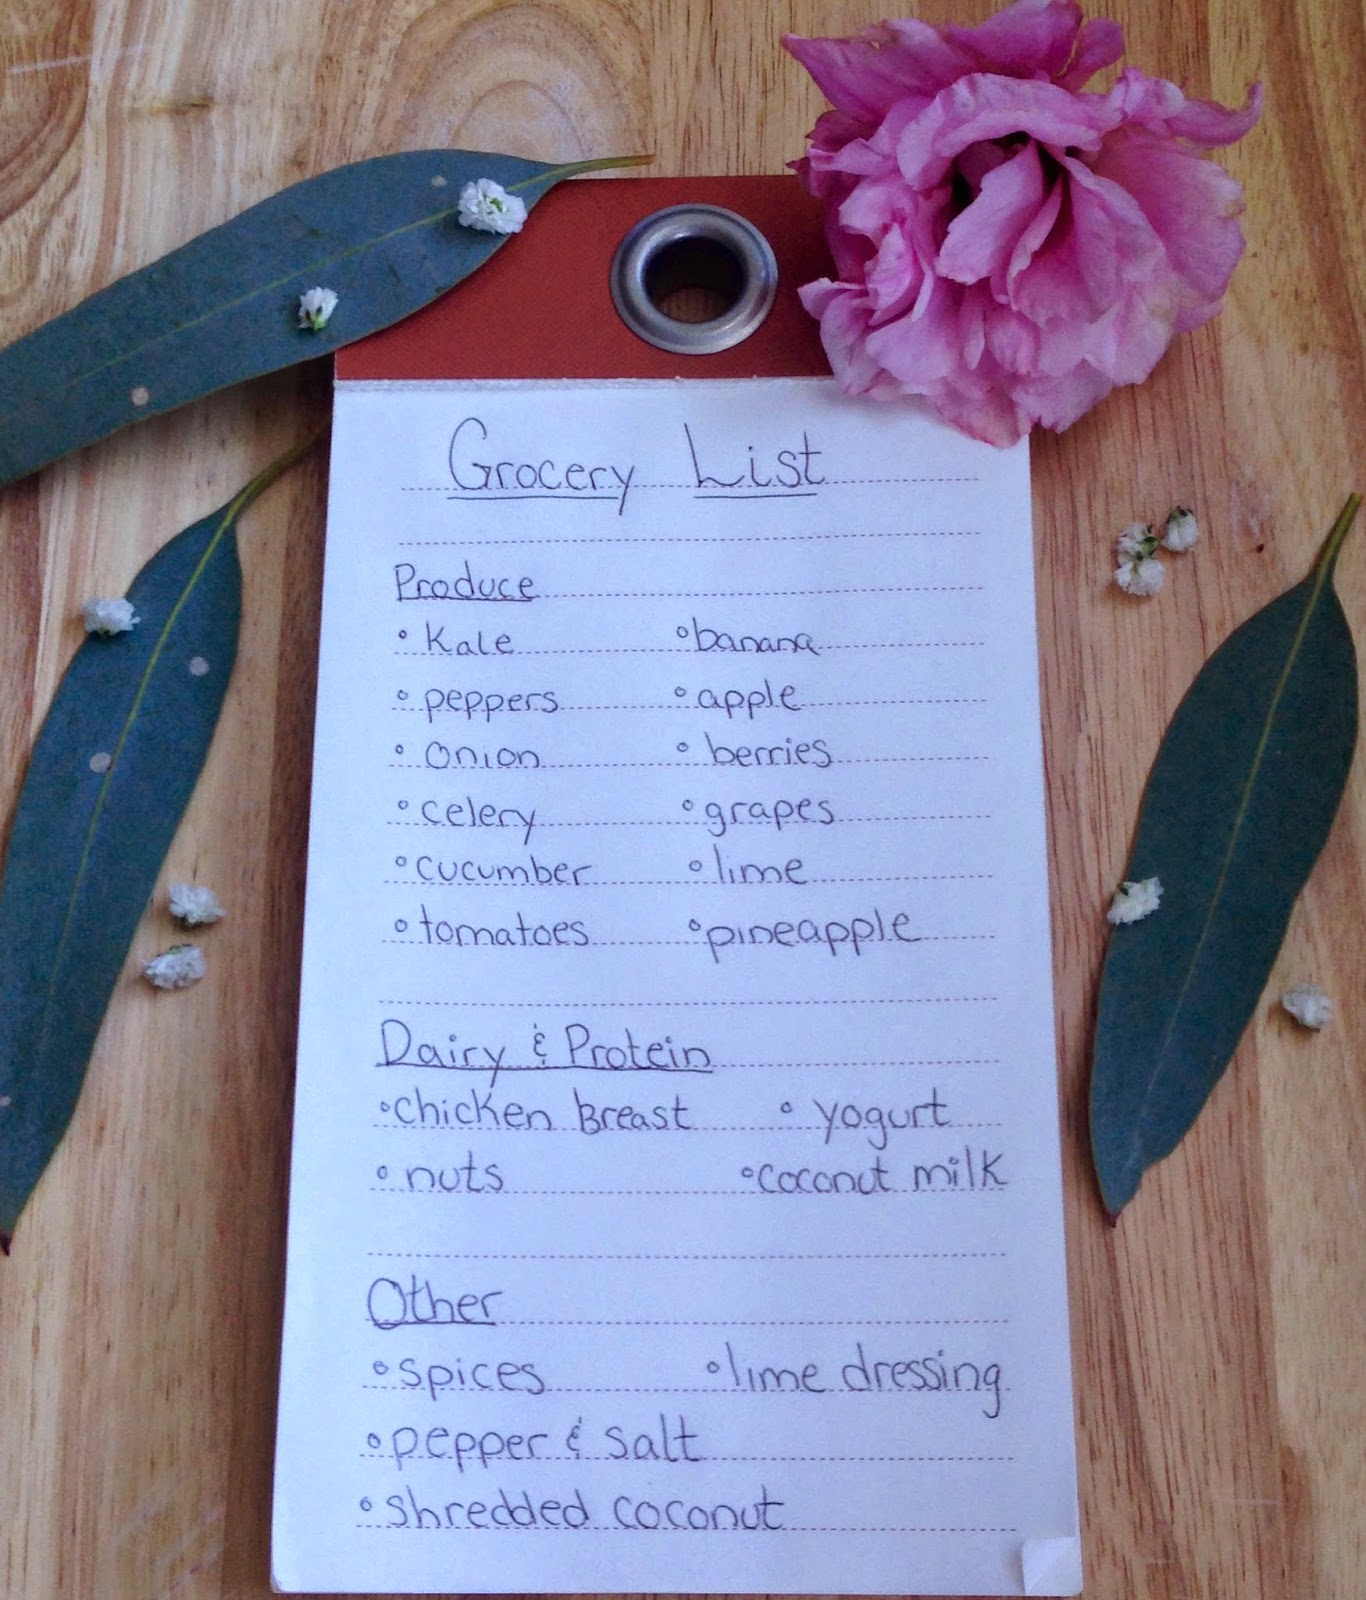 Grocery List
Produce
° Kale °banana
° peppers ° apple
° Onion ° berries
° celery ° grapes
° cucumber ° lime
° tomatoes °pineapple
Dairy & Protein
°chicken Breast ° yogurt
° nuts °coconut milk
Other
° spices °lime dressing
° pepper & salt
° shredded coconut